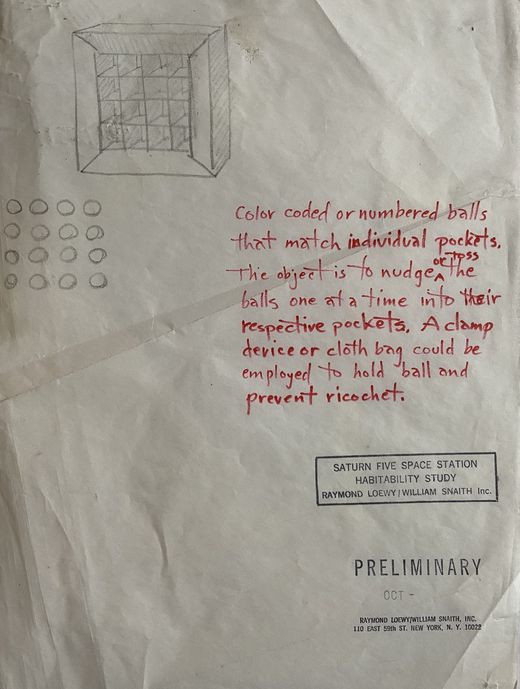 Color coded or numbered balls
that match individual pockets.
The object is to nudge or toss the
balls one at a time into their
respective pockets. A clamp
device or cloth bag could be
employed to hold ball and
prevent ricochet.
SATURN FIVE SPACE STATION
HABITABILITY STUDY
RAYMOND LOEWY/WILLIAM SNAITH Inc.
PRELIMINARY
OCT -
RAYMOND LOEWY/WILLIAM SNAITH, INC.
110 EAST 59th ST. NEW YORK, N. Y. 10022